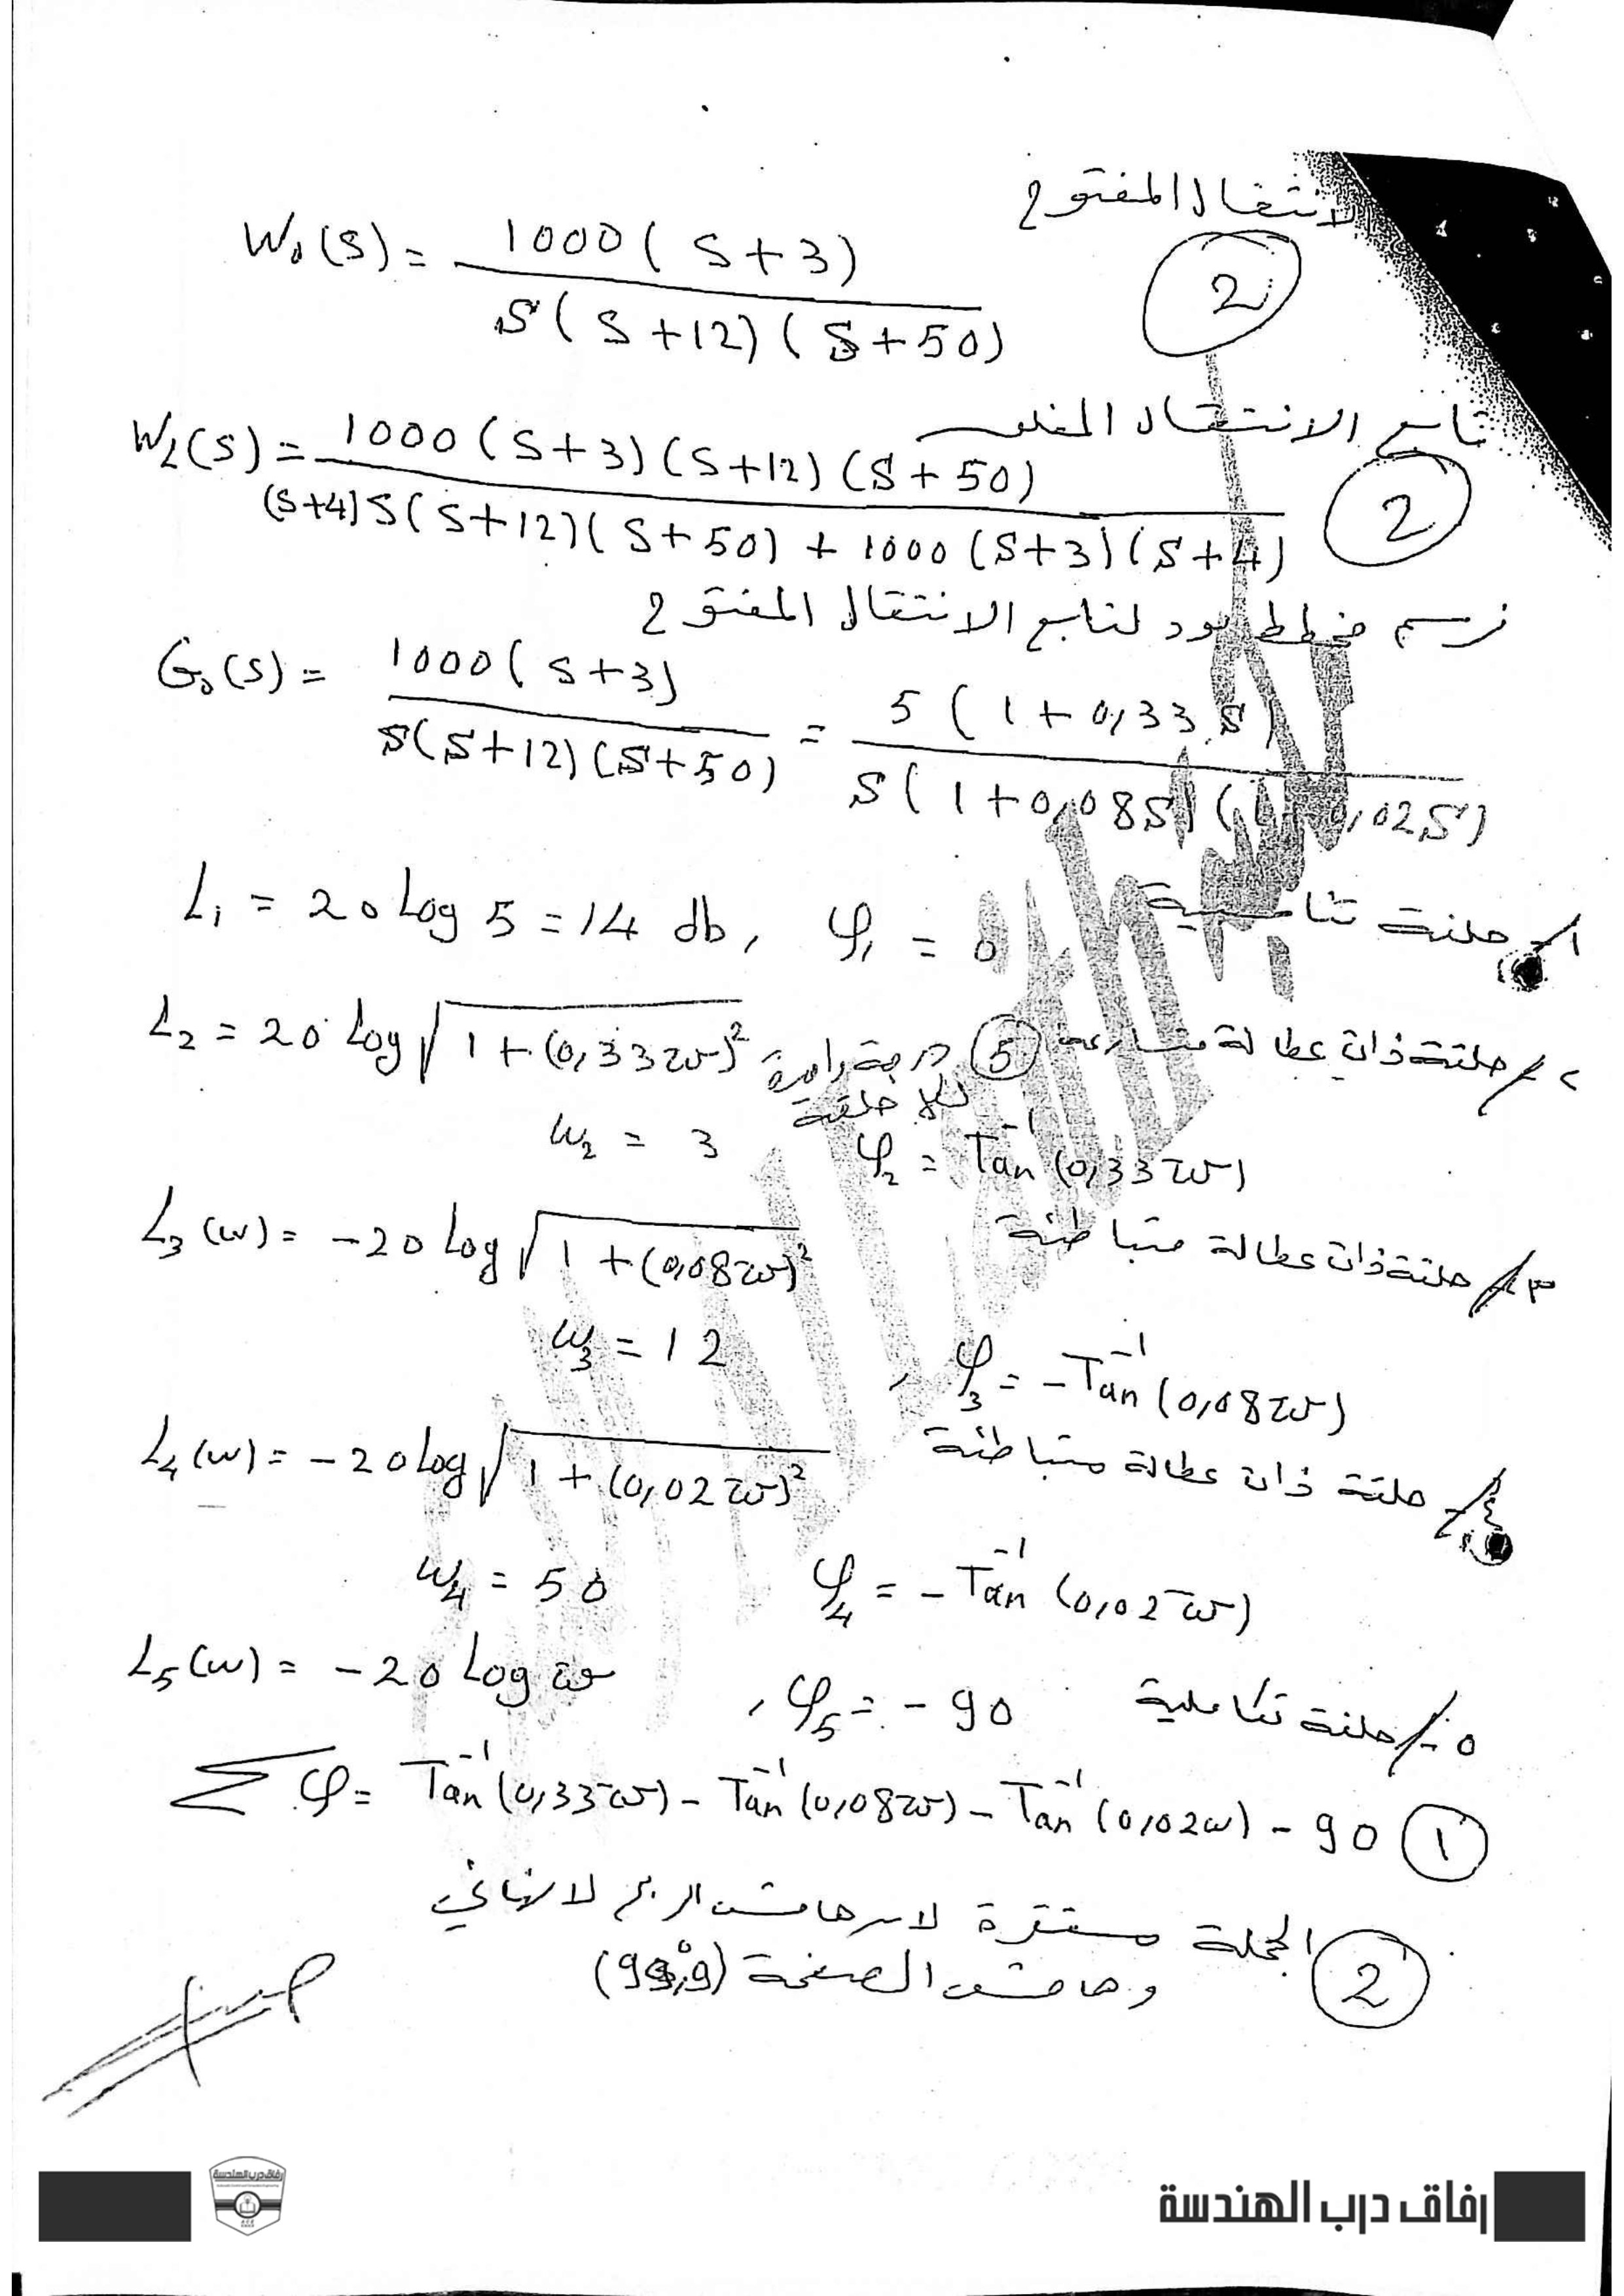 الانتقال المفتوح
W₀(S) = 1000(S+3) / S(S+12)(S+50)
2
تابع الانتقال المغلق
W₂(S) = 1000(S+3)(S+12)(S+50) / (S+4)S(S+12)(S+50) + 1000(S+3)(S+4)
2
نرسم مخطط بود لتابع الانتقال المفتوح
G₀(S) = 1000(S+3) / S(S+12)(S+50) = 5(1+0,33S) / S(1+0,08S)(1+0,02S)
١- حلقة تناسبية L₁ = 20 Log 5 = 14 db, φ₁ = 0
٢- حلقة ذات عطالة متسارعة L₂ = 20 Log √1+(0,33ω)²
5 درجة واحدة لكل حلقة
ω₂ = 3 φ₂ = Tan⁻¹(0,33ω)
٣- حلقة ذات عطالة متباطئة L₃(ω) = -20 Log √1+(0,08ω)²
ω₃ = 12, φ₃ = -Tan⁻¹(0,08ω)
٤- حلقة ذات عطالة متباطئة L₄(ω) = -20 Log √1+(0,02ω)²
ω₄ = 50 φ₄ = -Tan⁻¹(0,02ω)
٥- حلقة تكاملية L₅(ω) = -20 Log ω, φ₅ = -90
Σφ = Tan⁻¹(0,33ω) - Tan⁻¹(0,08ω) - Tan⁻¹(0,02ω) - 90 1
الجملة مستقرة لان هامش الربح لا نهائي
2 وهامش الصفحة
رفاق درب الهندسة